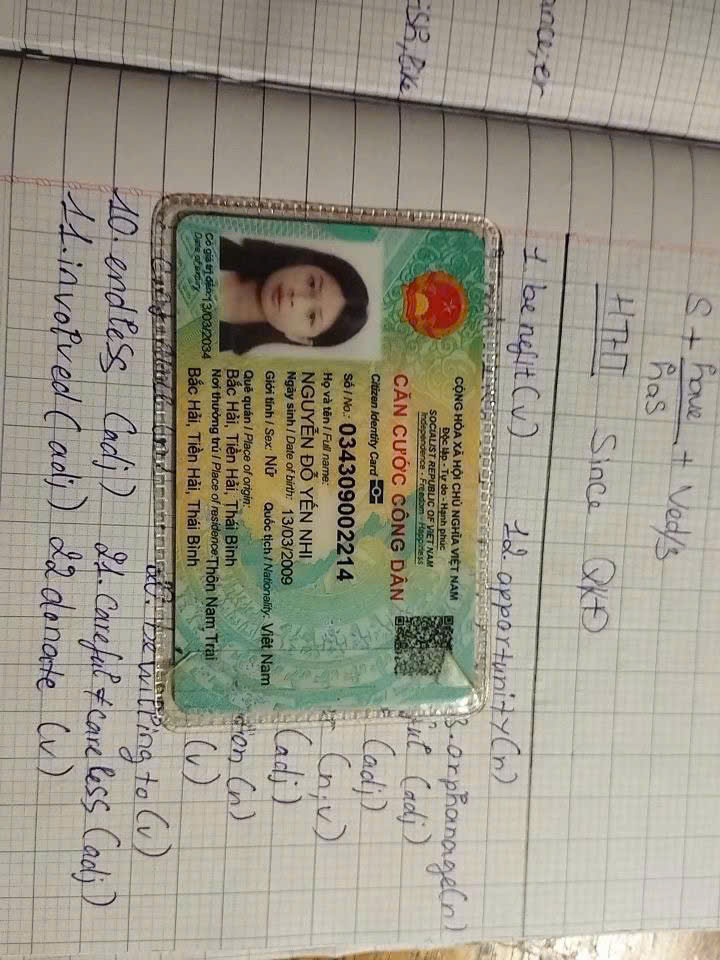 ance, er
ish, like
S + have + Ved/3
has
HTHT Since QKĐ
1. benefit (v) 12 opportunity (n)
3. orphanage (n)
ful (adj)
(adj)
(n, v)
(adj)
ion (n)
(v)
20. be willing to (v)
10. endless (adj) 21. careful ≠ careless (adj)
11. involved (adj) 22 donate (v)
CỘNG HÒA XÃ HỘI CHỦ NGHĨA VIỆT NAM
Độc lập - Tự do - Hạnh phúc
SOCIALIST REPUBLIC OF VIET NAM
Independence - Freedom - Happiness
CĂN CƯỚC CÔNG DÂN
Citizen Identity Card
Số / No.: 034309002214
Họ và tên / Full name:
NGUYỄN ĐỖ YẾN NHI
Ngày sinh / Date of birth: 13/03/2009
Giới tính / Sex: Nữ Quốc tịch / Nationality: Việt Nam
Quê quán / Place of origin:
Bắc Hải, Tiền Hải, Thái Bình
Nơi thường trú / Place of residence: Thôn Nam Trại
Bắc Hải, Tiền Hải, Thái Bình
Có giá trị đến: 13/03/2034
Date of expiry